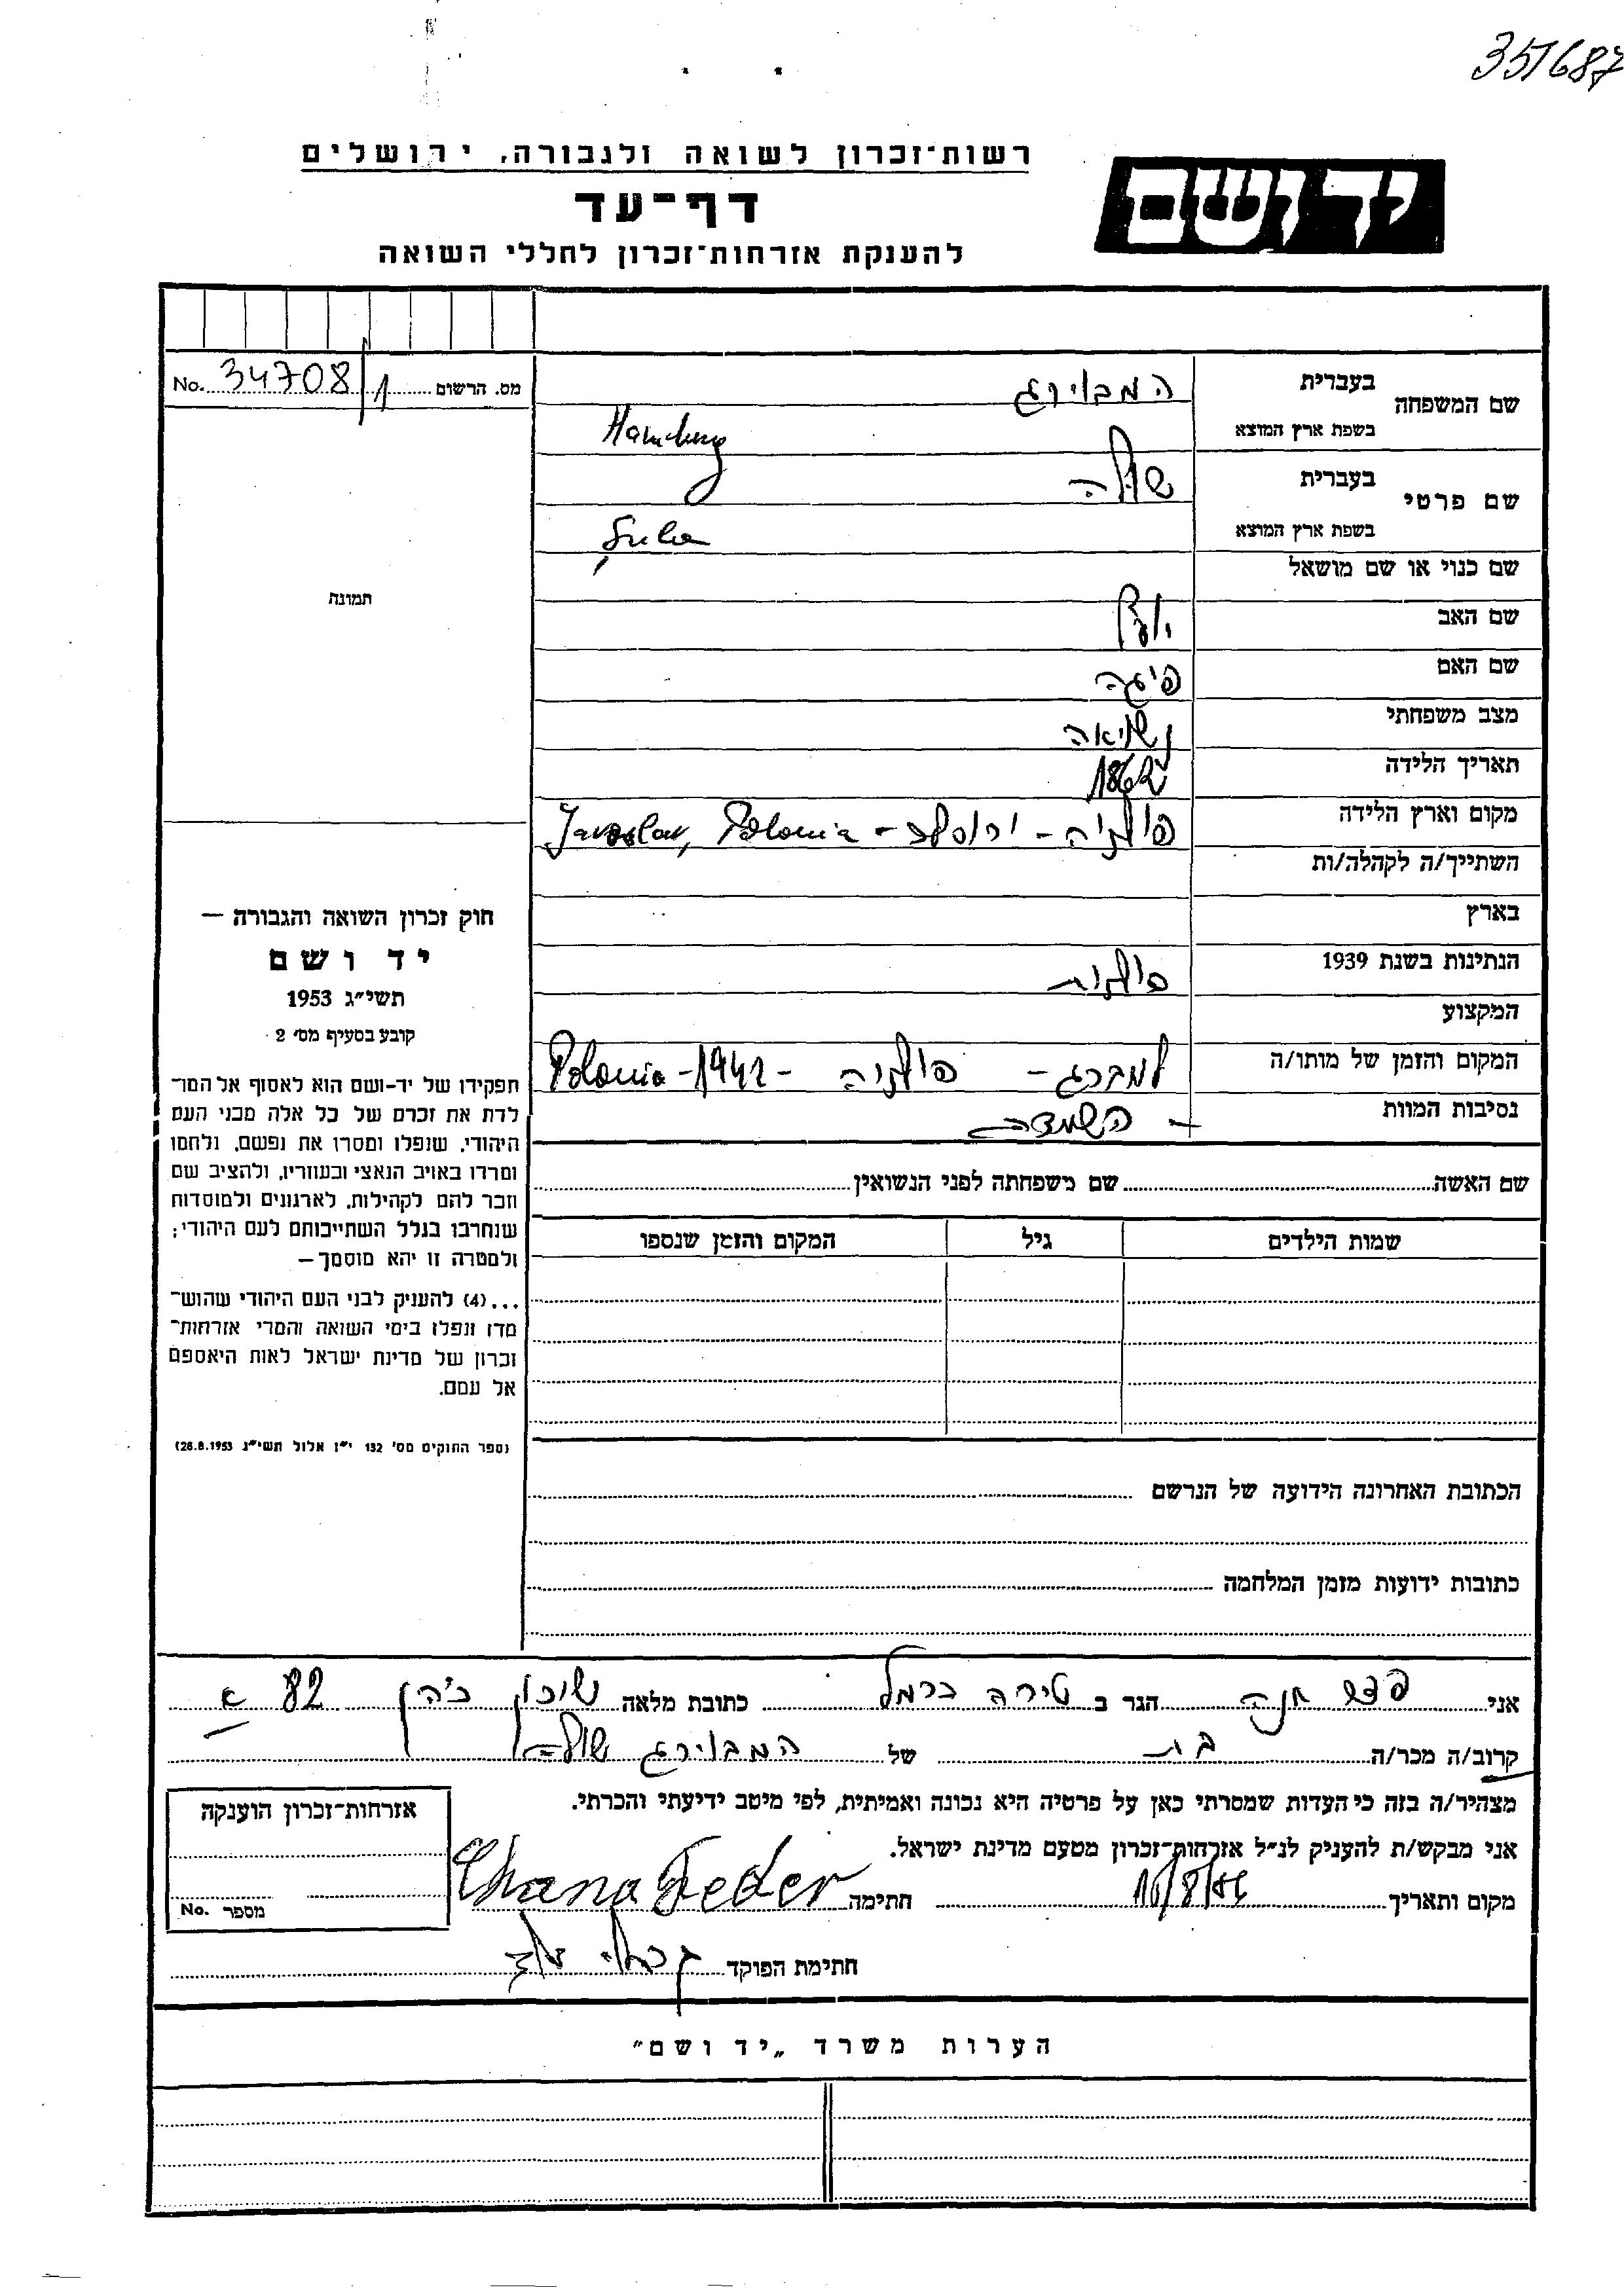 351687
רשות־זכרון לשואה ולגבורה, ירושלים
יד ושם
דף־עד
להענקת אזרחות־זכרון לחללי השואה
מס. הרשום 34708/1 No.
שם המשפחה
בעברית המבוירג
בשפת ארץ המוצא Hamburg
שם פרטי
בעברית שולה
בשפת ארץ המוצא
שם כנוי או שם מושאל
תמונה
שם האב
שם האם פיגה
מצב משפחתי נשואה
תאריך הלידה 1862
מקום וארץ הלידה פולניה - ירוסלב - Jaroslav, Polonia
השתייך/ה לקהלה/ות
בארץ
הנתינות בשנת 1939 פולנית
המקצוע
המקום והזמן של מותו/ה למברג - פולניה - Polonia - 1942
נסיבות המוות - השמדה
חוק זכרון השואה והגבורה —
יד ושם
תשי״ג 1953
קובע בסעיף מס׳ 2
תפקידו של יד-ושם הוא לאסוף אל המו־
לדת את זכרם של כל אלה מבני העם
היהודי, שנפלו ומסרו את נפשם, נלחמו
ומרדו באויב הנאצי ובעוזריו, ולהציב שם
וזכר להם לקהילות, לארגונים ולמוסדות
שנחרבו בגלל השתייכותם לעם היהודי;
ולמטרה זו יהא מוסמך —
...(4) להעניק לבני העם היהודי שהוש־
מדו ונפלו בימי השואה והמרי אזרחות־
זכרון של מדינת ישראל לאות היאספם
אל עמם.
(ספר החוקים מס׳ 132 י״ז אלול תשי״ג 28.8.1953)
שם האשה שם משפחתה לפני הנשואין
שמות הילדים גיל המקום והזמן שנספו
הכתובת האחרונה הידועה של הנרשם
כתובות ידועות מזמן המלחמה
אני פדר חנה הגר ב טירה כרמל כתובת מלאה שיכון 82 א
קרוב/ה מכר/ה בת של המבוירג שולה
מצהיר/ה בזה כי העדות שמסרתי כאן על פרטיה היא נכונה ואמיתית, לפי מיטב ידיעתי והכרתי.
אני מבקש/ת להעניק לנ״ל אזרחות־זכרון מטעם מדינת ישראל.
מקום ותאריך חתימה Chana Feder
חתימת הפוקד
אזרחות־זכרון הוענקה
מספר No.
הערות משרד „יד ושם״